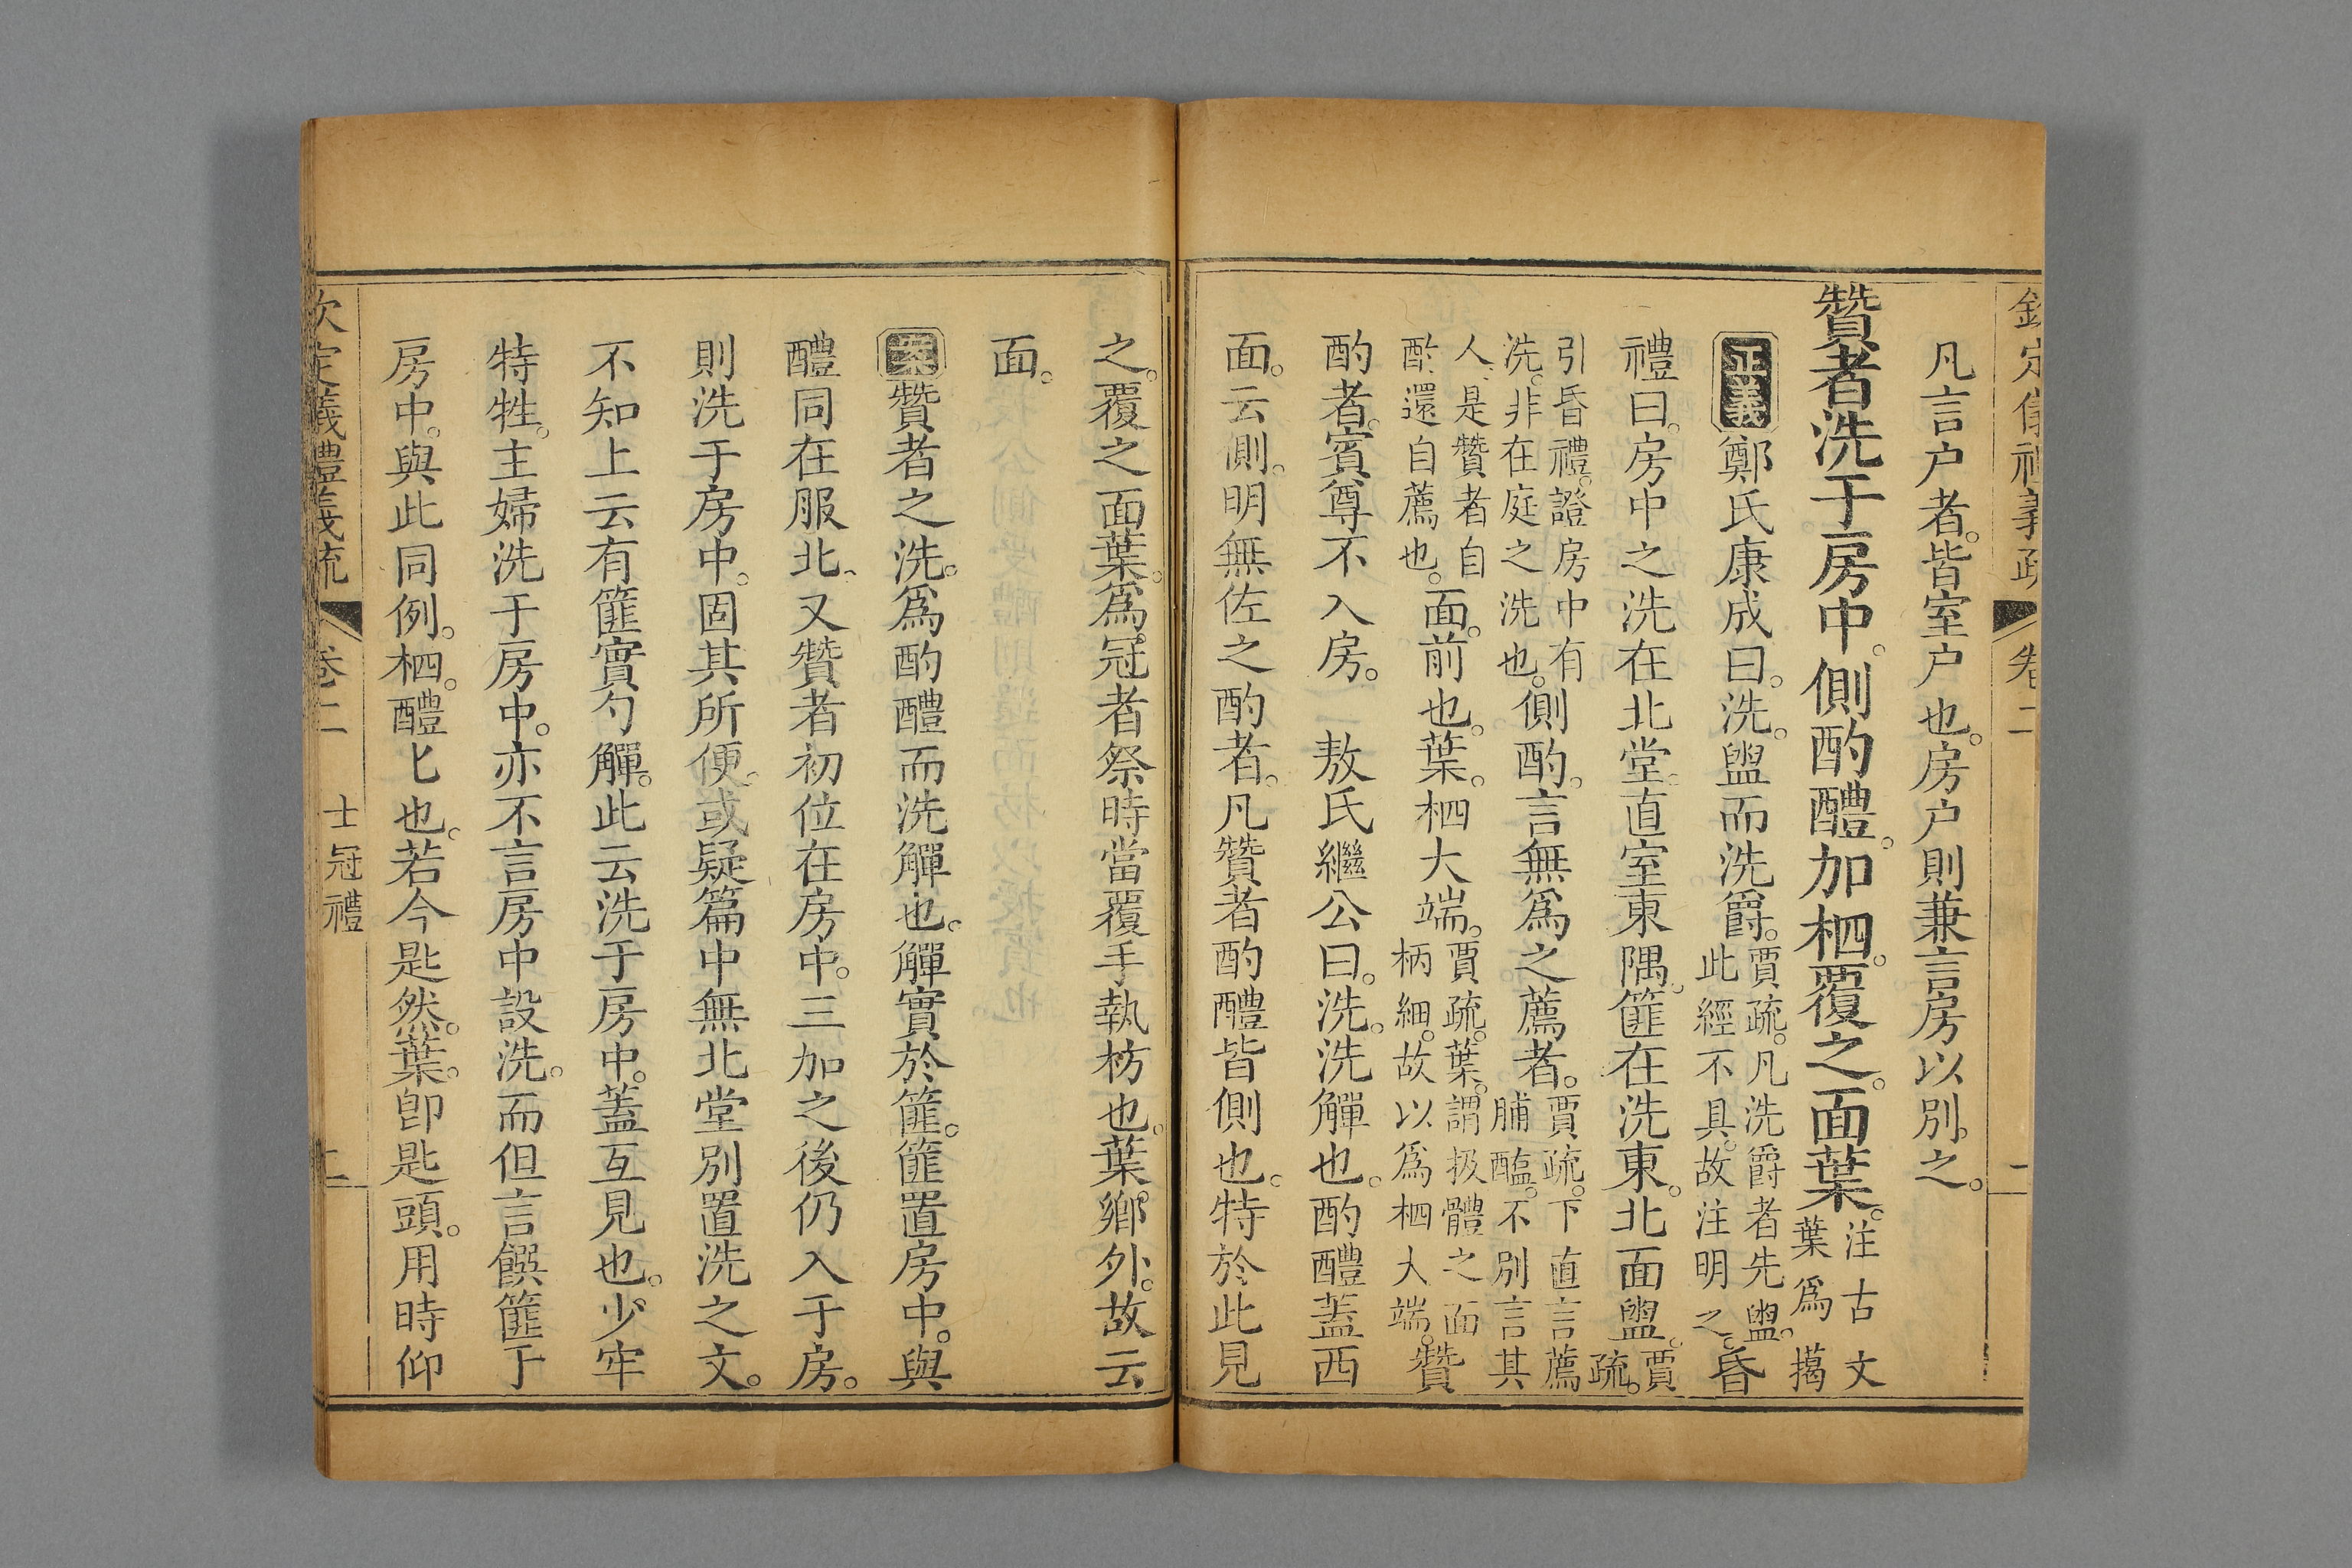 欽定儀禮義疏 卷二 二
凡言户者。皆室户也。房户則兼言房以別之。
贊者洗于房中。側酌醴。加柶。覆之。面葉。注古文葉爲擖
正義鄭氏康成曰。洗。盥而洗爵。賈疏。凡洗爵者先盥。此經不具。故注明之。昏
禮曰。房中之洗在北堂。直室東隅。篚在洗東。北面盥。賈疏。
引昏禮。證房中有洗。非在庭之洗也。側酌。言無爲之薦者。賈疏。下直言薦脯醢。不別言其
人。是贊者自酌。還自薦也。面。前也。葉。柶大端。賈疏。葉。謂扱醴之面柄細。故以爲柶大端。贊
酌者。賓尊不入房。 敖氏繼公曰。洗。洗觶也。酌醴蓋西
面。云側。明無佐之酌者。凡贊者酌醴皆側也。特於此見
之。覆之面葉。爲冠者祭時當覆手執枋也。葉鄉外。故云
面。
案贊者之洗。爲酌醴而洗觶也。觶實於篚。篚置房中。與
醴同在服北。又贊者初位在房中。三加之後仍入于房。
則洗于房中。固其所便。或疑篇中無北堂別置洗之文。
不知上云有篚實勺觶。此云洗于房中。蓋互見也。少牢
特牲。主婦洗于房中。亦不言房中設洗。而但言饌篚于
房中。與此同例。柶。醴匕也。若今匙然。葉。卽匙頭。用時仰
欽定儀禮義疏 卷二 士冠禮 二